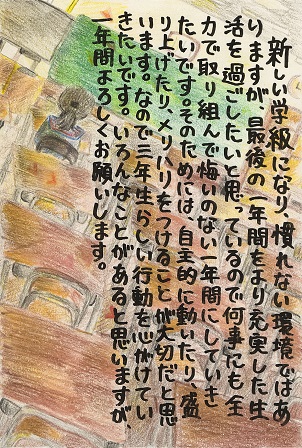 新しい学級になり、慣れない環境ではあ
りますが、最後の一年間をより充実した生
活を過ごしたいと思っているので何事にも全
力で取り組んで悔いのない一年間にしていき
たいです。そのためには、自主的に動いたり、盛
り上げたりメリハリをつけることが大切だと思
います。なので三年生らしい行動を心がけてい
きたいです。いろんなことがあると思いますが、
一年間よろしくお願いします。